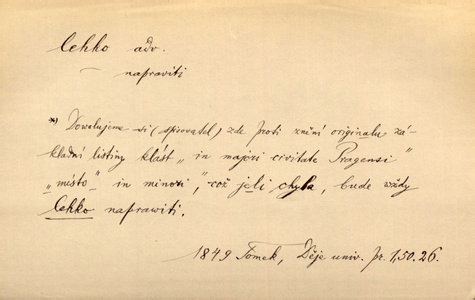 lehko adv.
— napraviti
*) Dowolujeme si (spisovatel) zde proti znění originalu zá-
kladní listiny klást „in majori civitate Pragensi"
„místo" in minori", což jeli chyba, bude wždy
lehko naprawiti.
1849 Tomek, Děje univ. pr. 1,50.26.